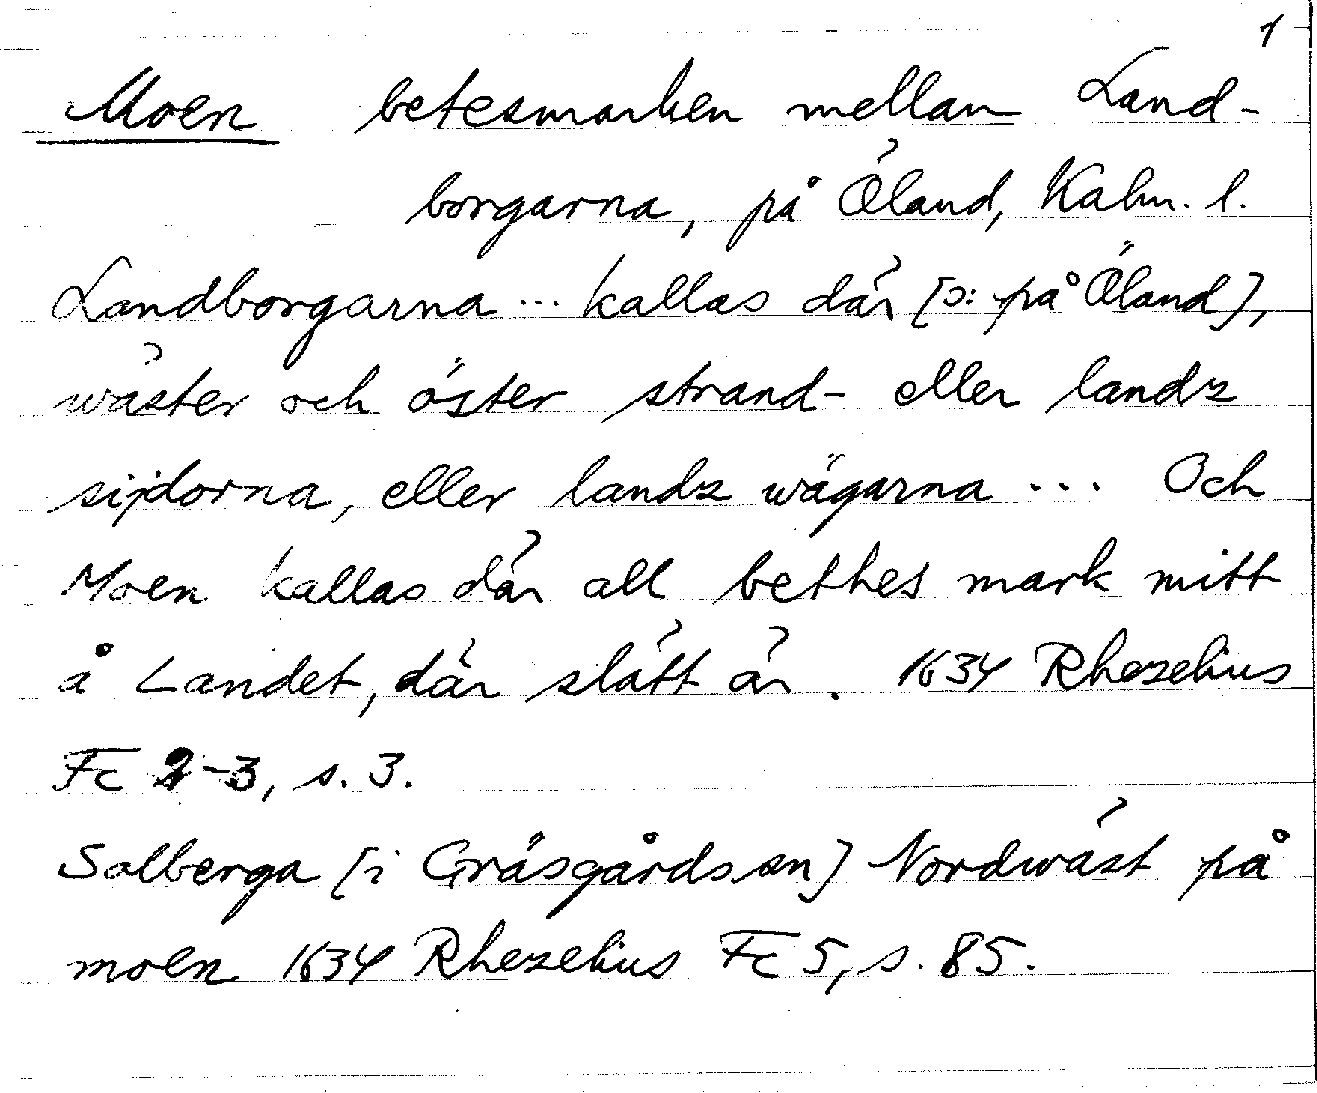 1
Moen betesmarken mellan Land-
borgarna, på Öland, Kalm. l.
Landborgarna ... kallas där [ɔ: på Öland],
wäster och öster strand- eller landz
sijdorna, eller landz wägarna ... Och
Moen kallas där all bethes mark mitt
å Landet, där slätt är. 1634 Rhezelius
Fc 2-3, s. 3.
Solberga [i Gräsgårds sn] Nordwäst på
moen 1634 Rhezelius Fc 5, s. 85.